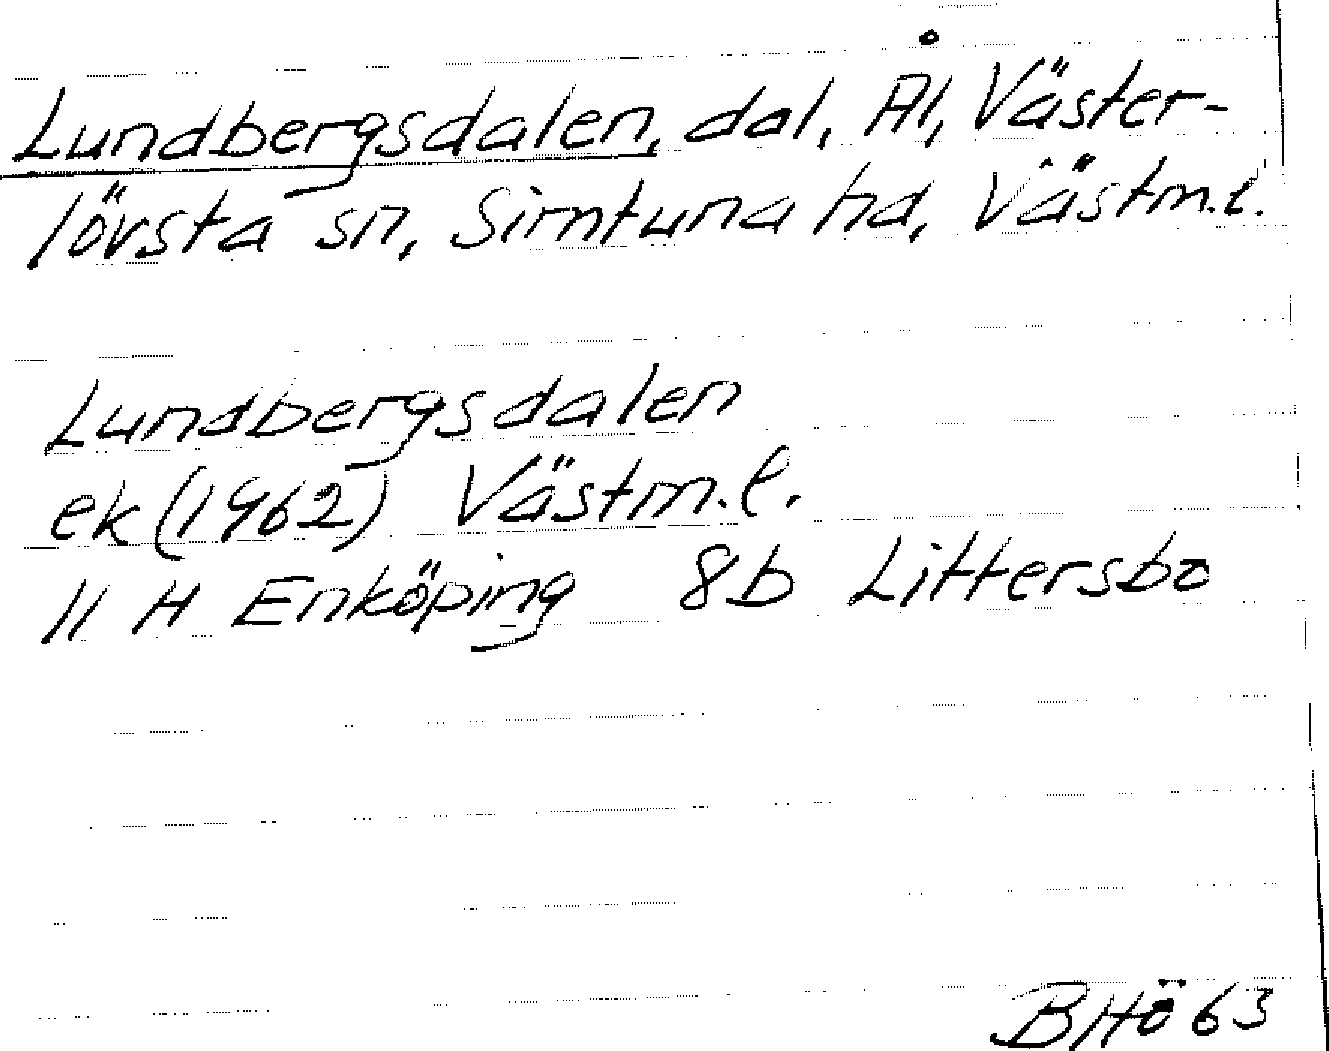 Lundbergsdalen, dal, Ål, Väster-
lövsta sn, Simtuna hd, Västm.l.
Lundbergsdalen
ek (1962) Västm.l.
11 H Enköping 8b Littersbo
BHÖ 63